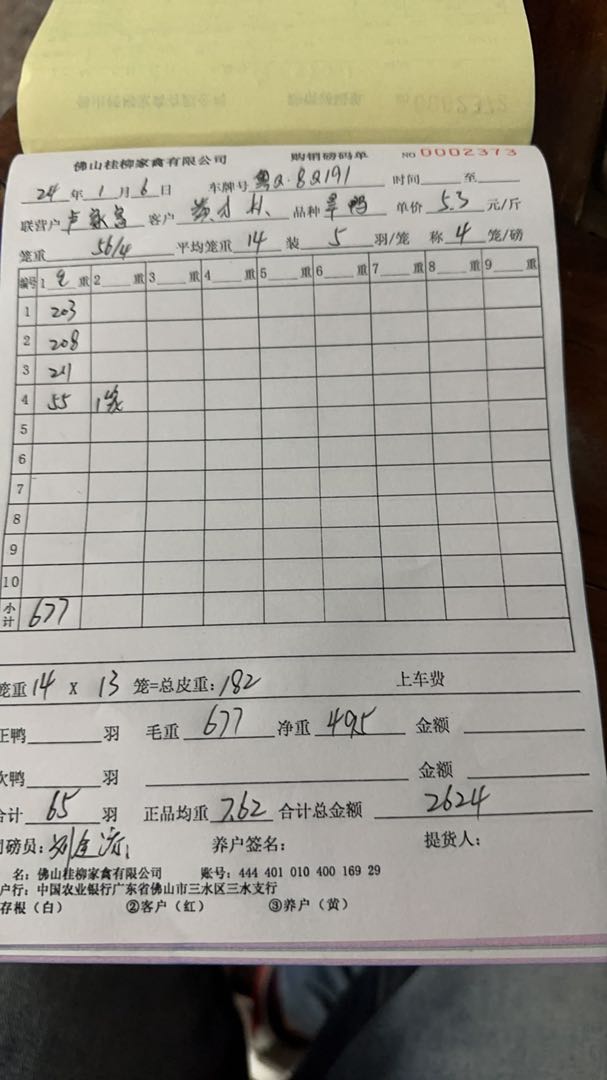 佛山桂柳家禽有限公司 购销磅码单 NO 0002373
24 年 1 月 6 日 车牌号 粤Q·8Q191 时间 至
联营户 卢 客户 品种 鸭 单价 5.3 元/斤
笼重 56/4 平均笼重 14 装 5 羽/笼 称 4 笼/磅
编号 1 毛 重 2 重 3 重 4 重 5 重 6 重 7 重 8 重 9 重
1 203
2 208
3 211
4 55 1笼
5
6
7
8
9
10
小计 677
笼重 14 X 13 笼=总皮重: 182 上车费
正鸭 羽 毛重 677 净重 495 金额
次鸭 羽 金额
合计 65 羽 正品均重 7.62 合计总金额 2624
司磅员: 养户签名: 提货人:
名: 佛山桂柳家禽有限公司 账号: 444 401 010 400 169 29
户行: 中国农业银行广东省佛山市三水区三水支行
存根（白） ②客户（红） ③养户（黄）